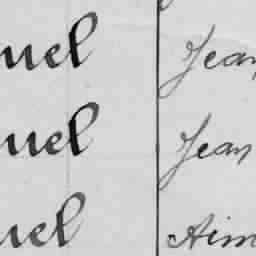 uel Jean
uel Jean
uel Aim